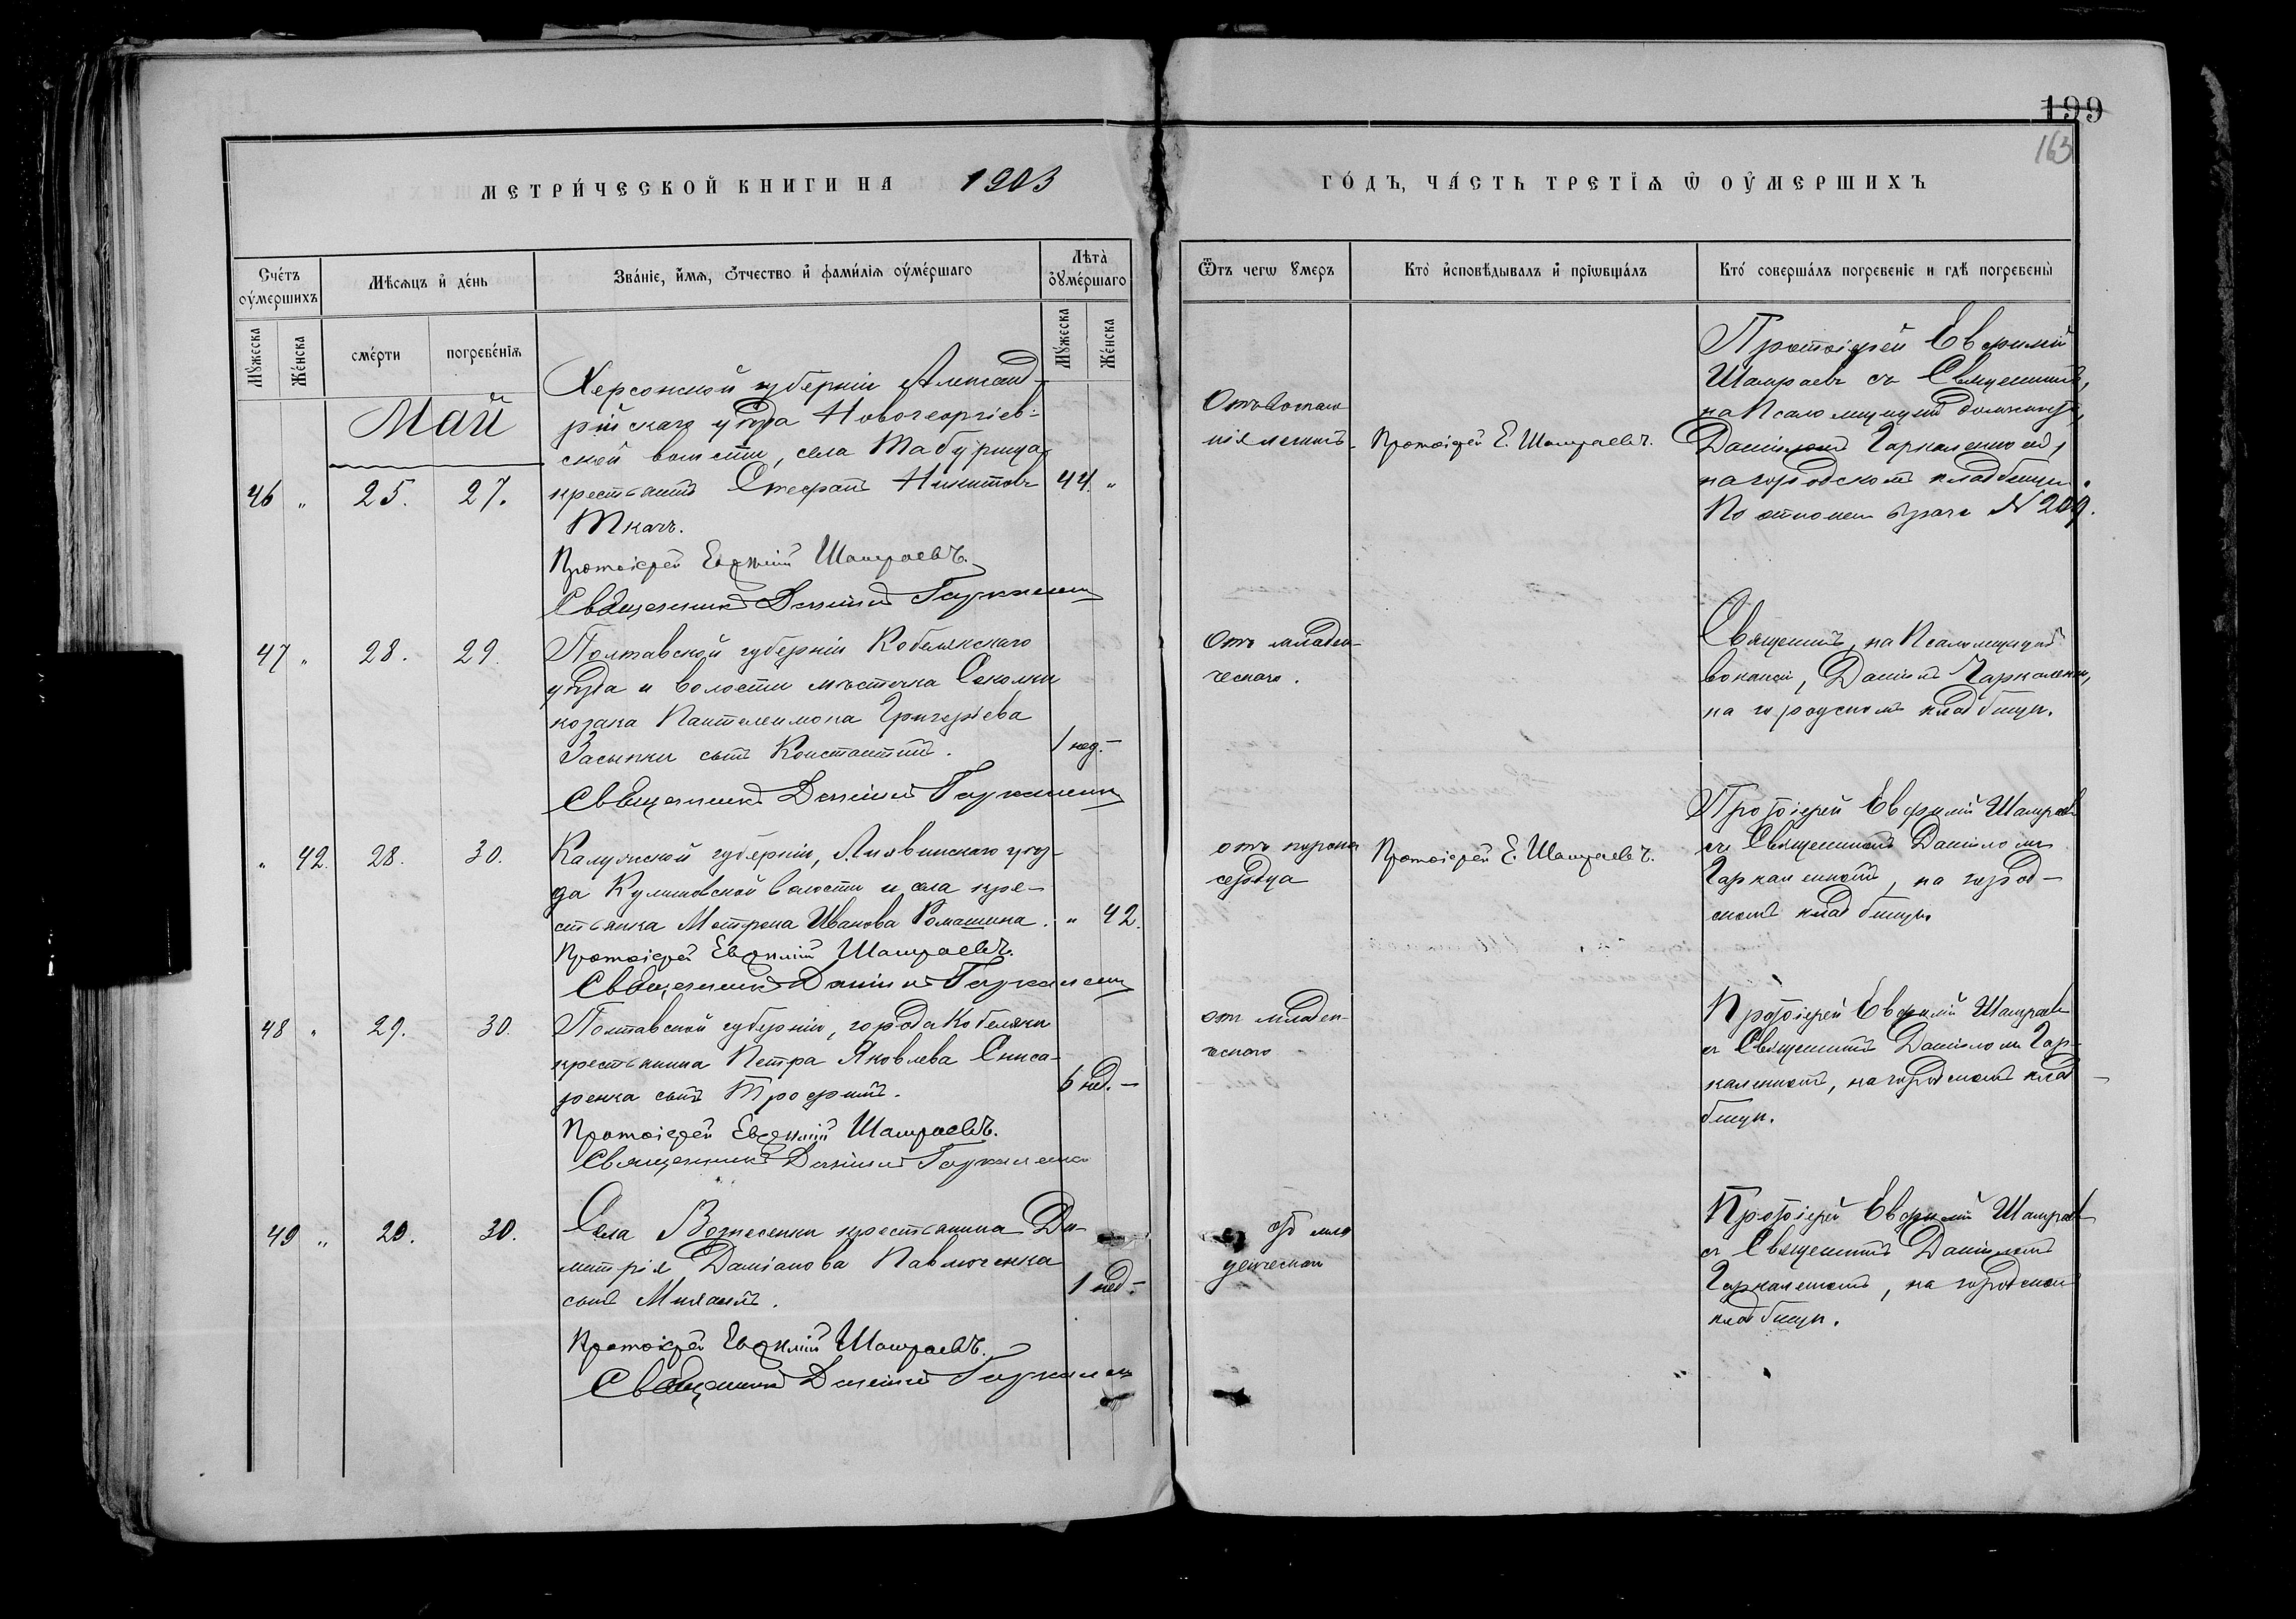 199
163
МЕТРИ́ЧЕСКОЙ КНИГИ НА 1903
ГО́ДЪ, ЧА́СТЬ ТРЕТІѦ Ѡ ОУ҆МЕРШИХЪ
Сче́тъ оу҆ме́ршихъ
Мѣ́сѧцъ и҆ де́нь
Зва́ніе, и҆́мѧ, о҆́тчество и҆ фами́лія оу҆ме́ршаго
Лѣта̀ оу҆ме́ршаго
Ѿ чегѡ ᲂу҆меръ
Кто̀ и҆сповѣ́дывалъ и҆ прїѡбща́лъ
Кто́ соверша́лъ погребе́ніе и гдѣ̀ погребены̀
Мꙋ́жеска
Же́нска
сме́рти
погребе́нія
Мꙋ́жеска
Же́нска
Май
46 " 25. 27.
Херсонской губерніи Александ-
рійскаго уѣзда Новогеоргіев-
ской волости, села Табурища
крестьянинъ Стефанъ Никитовъ 44. "
Ткачъ.
Протоіерей Евѳимій Шамраевъ.
Священникъ Даніилъ Гаркаленко
Протоіерей Е. Шамраевъ.
Протоіерей Евфимій
Шамраевъ съ Священник.,
на Псаломщицкой
Даніиломъ Гаркаленкой,
на городскомъ кладбищѣ.
По врача N 209.
47 " 28. 29.
Полтавской губерніи Кобелякскаго
уѣзда и волости мѣстечка Соколки
козака Пантелеимона Григорьева
Засыпки сынъ Константинъ. 1 нед. –
Священникъ Даніилъ Гаркаленко
Отъ младен-
ческаго.
Священникъ, на Псаломщицкой
вакансіи, Даніилъ Гаркаленко,
на городскомъ кладбищѣ.
" 42. 28. 30.
Калужской губерніи, уѣз-
да Кулишовской волости и села кре-
стьянка Матрона Иванова Ромашина. " 42.
Протоіерей Евѳимій Шамраевъ.
Священникъ Даніилъ Гаркаленко
отъ порока
сердца
Протоіерей Е. Шамраевъ.
Протоіерей Евфимій Шамраевъ
съ Священникомъ Даніиломъ
Гаркаленкомъ, на город-
скомъ кладбищѣ.
48 " 29. 30.
Полтавской губерніи, города Кобеляки
крестьянина Петра Яковлева Сниса-
ренка сынъ Трофимъ. 6 нед. –
Протоіерей Евѳимій Шамраевъ.
Священникъ Даніилъ Гаркаленко
отъ младен-
ческаго
Протоіерей Евфимій Шамраевъ
съ Священникомъ Даніиломъ Гар-
каленкомъ, на городскомъ клад-
бищѣ.
49 " 29. 30.
Села Вознесенки крестьянина Ди-
митрія Даміанова Павлюченка
сынъ Михаилъ. 1 нед. –
Протоіерей Евѳимій Шамраевъ.
Священникъ Даніилъ Гаркаленко
отъ мла
денческой
Протоіерей Евфимій Шамраевъ
съ Священникомъ Даніиломъ
Гаркаленкомъ, на городскомъ
кладбищѣ.